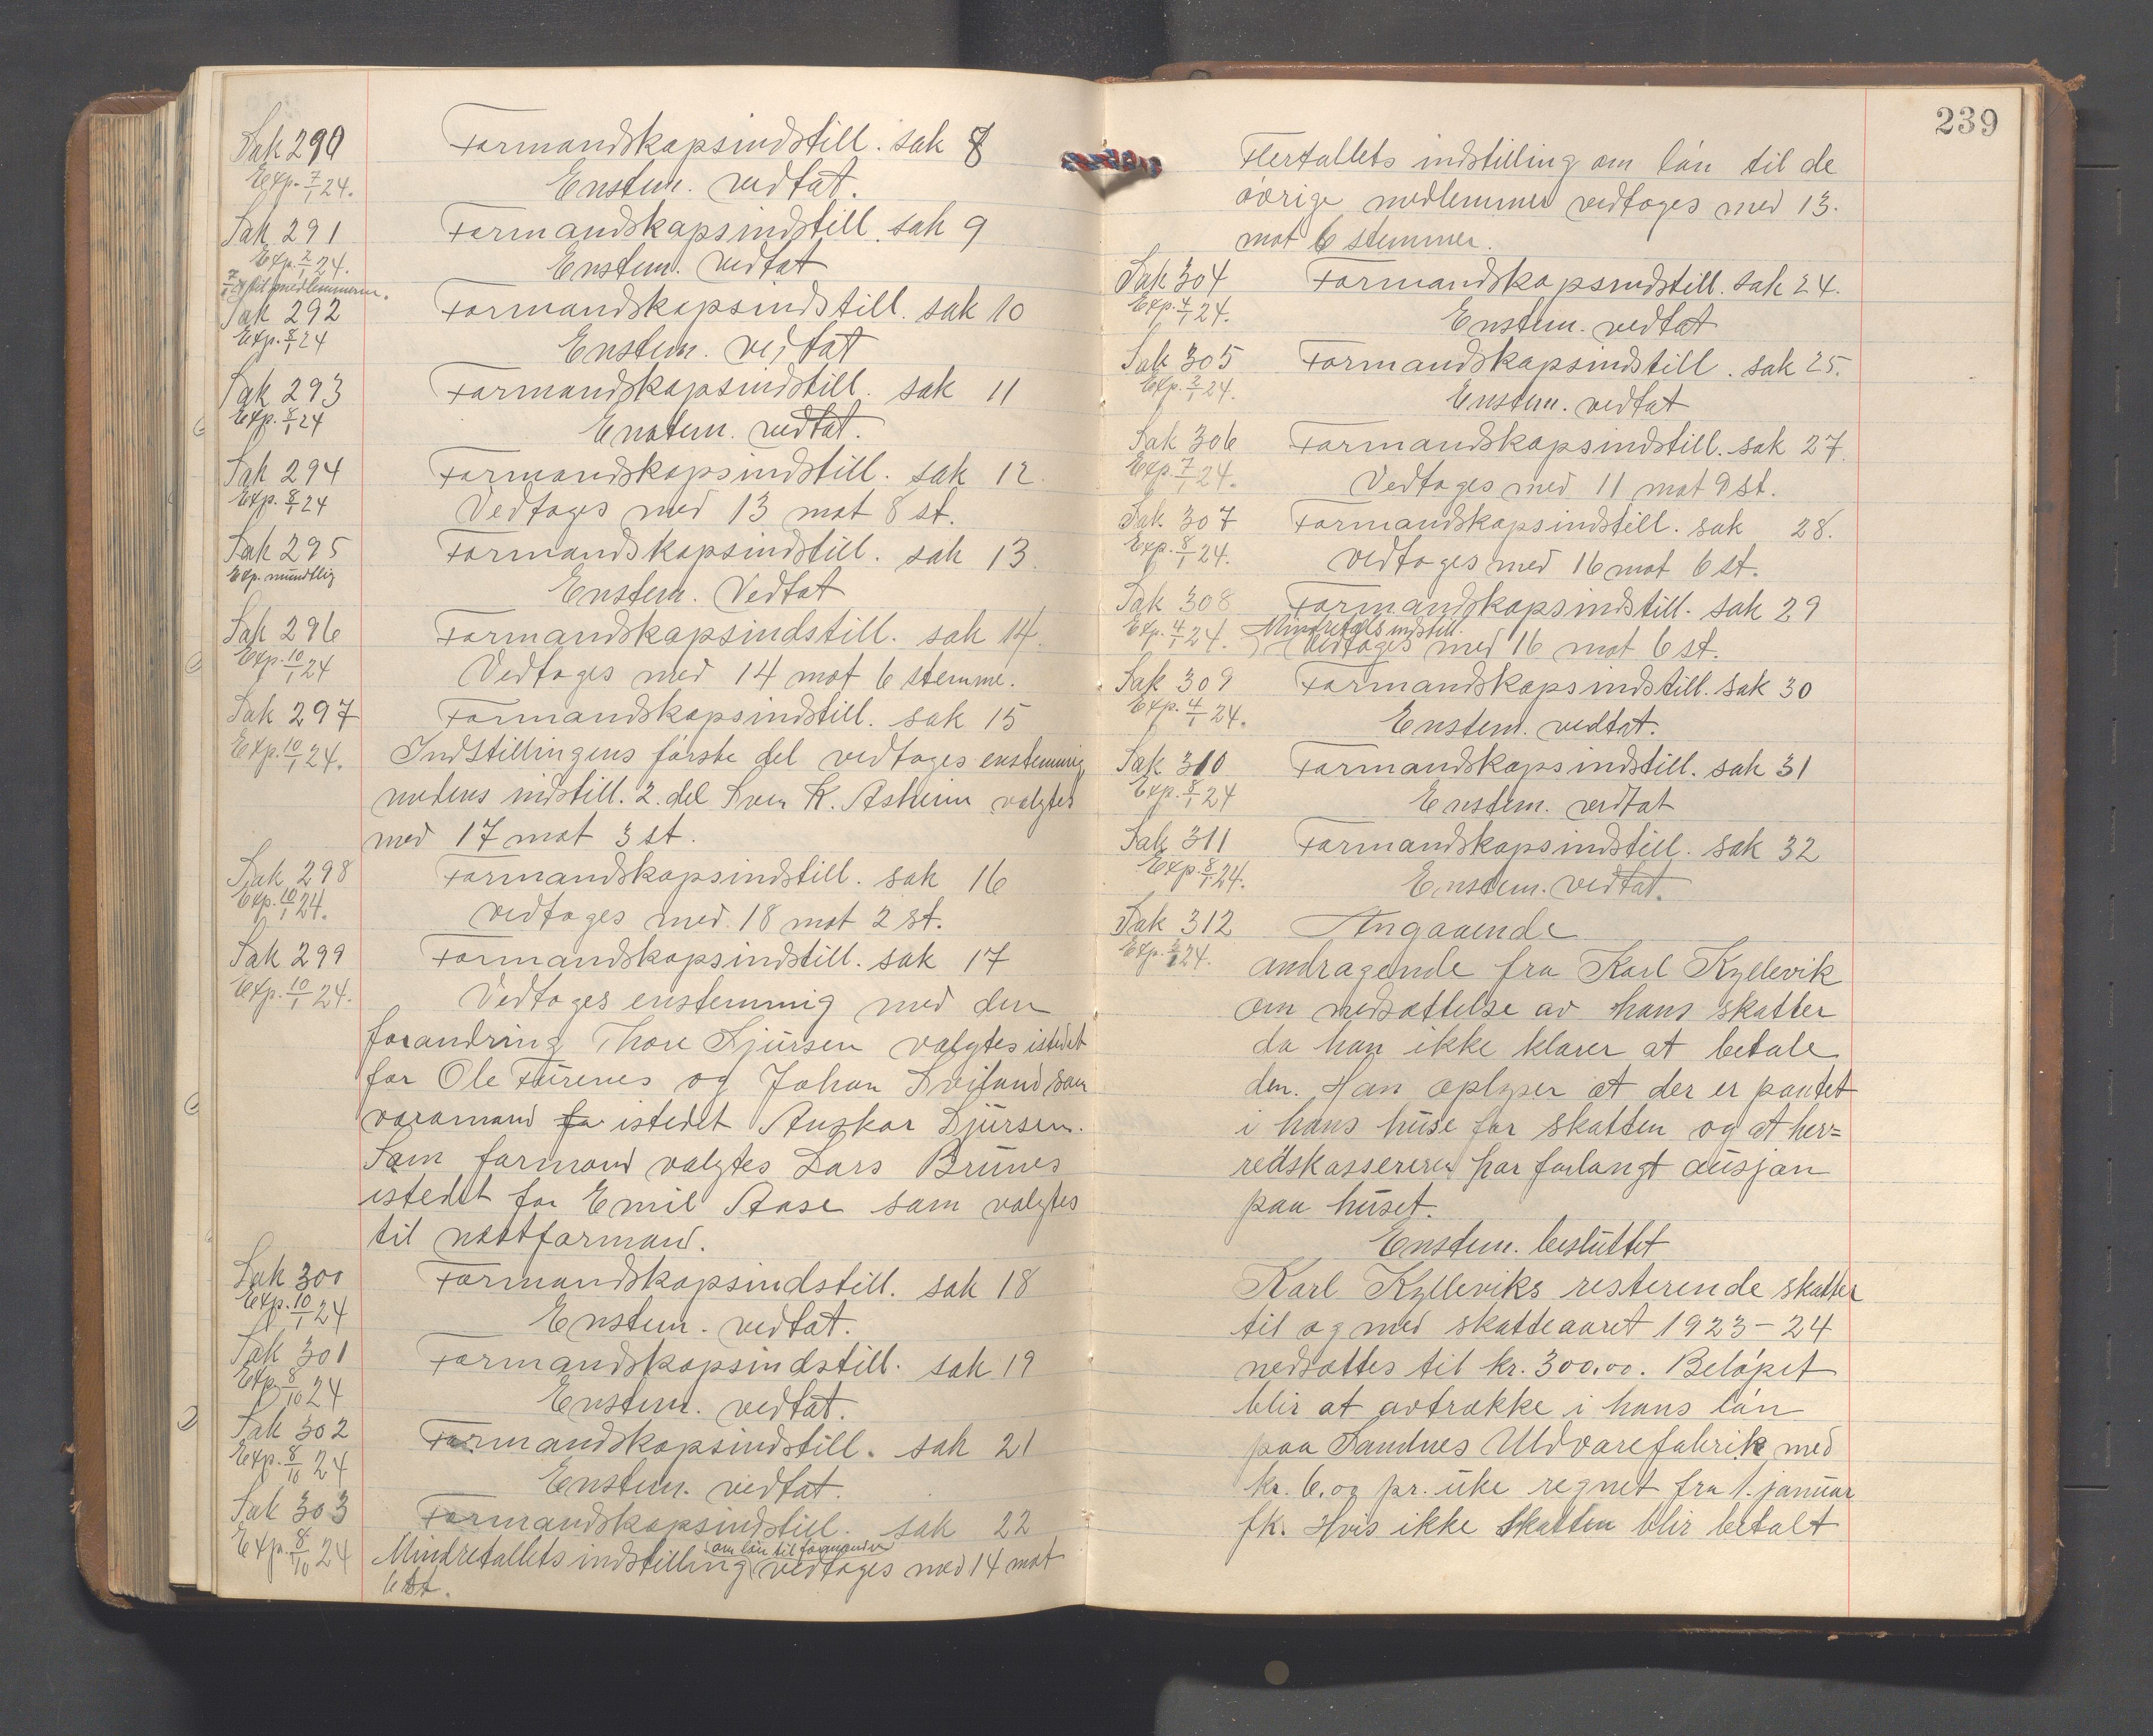 Sak 290 Formandskapsindstill. sak 8
Exp. 7/1 24. Enstem. vedtat.
Sak 291 Formandskapsindstill. sak 9
Exp. 2/1 24. Enstem. vedtat
7/1 24 til medlemmerne.
Sak 292 Formandskapsindstill. sak 10
Exp. 8/1 24 Enstem. vedtat
Sak 293 Formandskapsindstill. sak 11
Exp. 8/1 24 Enstem. vedtat.
Sak 294 Formandskapsindstill. sak 12.
Exp. 8/1 24 Vedtages med 13 mot 8 st.
Sak 295 Formandskapsindstill. sak 13.
Exp. mundtlig Enstem. Vedtat
Sak 296 Formandskapsindstill. sak 14.
Exp. 10/1 24 Vedtages med 14 mot 6 stemme.
Sak 297 Formandskapsindstill. sak 15
Exp. 10/1 24. Indstillingens første del vedtages enstemmig
indstill. 2. del Sven K. Asheim valgtes
med 17 mot 3 st.
Sak 298 Formandskapsindstill. sak 16
Exp. 10/1 24. vedtages med 18 mot 2 st.
Sak 299 Formandskapsindstill. sak 17
Exp. 10/1 24. Vedtages enstemmig med den
forandring Thore Sjursen valgtes istedet
for Ole Furenes og Johan Sviland som
varamand fo istedet Anskar Sjursen.
Som formand valgtes Lars Brunes
istedet for Emil Aase som valgtes
til næstformand.
Sak 300 Formandskapsindstill. sak 18
Exp. 10/1 24 Enstem. vedtat.
Sak 301 Formandskapsindstill. sak 19
Exp. 8/10 24 Enstem. vedtat.
Sak 302 Formandskapsindstill. sak 21
Exp. 8/10 24 Enstem. vedtat.
Sak 303 Formandskapsindstill. sak 22
Exp. 8/10 24 Mindretallets indstilling om lån til formanden vedtages med 14 mot
6 st.
239
Flertallets indstilling om lån til de
øvrige medlemmer vedtoges med 13.
mot 6 stemmer.
Sak 304 Formandskapsindstill. sak 24.
Exp. 4/1 24. Enstem. vedtat
Sak 305 Formandskapsindstill. sak 25.
Exp. 2/1 24. Enstem. vedtat
Sak 306 Formandskapsindstill. sak 27.
Exp. 7/1 24. Vedtoges med 11 mot 9 st.
Sak 307 Formandskapsindstill. sak 28.
Exp. 8/1 24. vedtoges med 16 mot 6 st.
Sak 308 Formandskapsindstill. sak 29
Mindretals indstill.
Exp. 4/1 24. Vedtoges med 16 mot 6 st.
Sak 309 Formandskapsindstill. sak 30
Exp. 4/1 24. Enstem. vedtat.
Sak 310 Formandskapsindstill. sak 31
Exp. 8/1 24 Enstem. vedtat
Sak 311 Formandskapsindstill. sak 32
Exp. 8/1 24. Enstem. vedtat.
Sak 312 Angaaende
Exp. 24. andragende fra Karl Kyllevik
om nedsættelse av hans skatter
da han ikke klarer at betale
den. Han oplyser at der er pantet
i hans huse for skatten og at her=
redskassereren har forlangt ausjon
paa huset.
Enstem. besluttet
Karl Kylleviks resterende skatter
til og med skatteaaret 1923-24
nedsættes til kr. 300.00. Beløpet
blir at avtrække i hans lån
paa Sandnes Uldvarefabrik med
kr. 6.00 pr. uke regnet fra 1. januar
fk. Hvis ikke skatten blir betalt